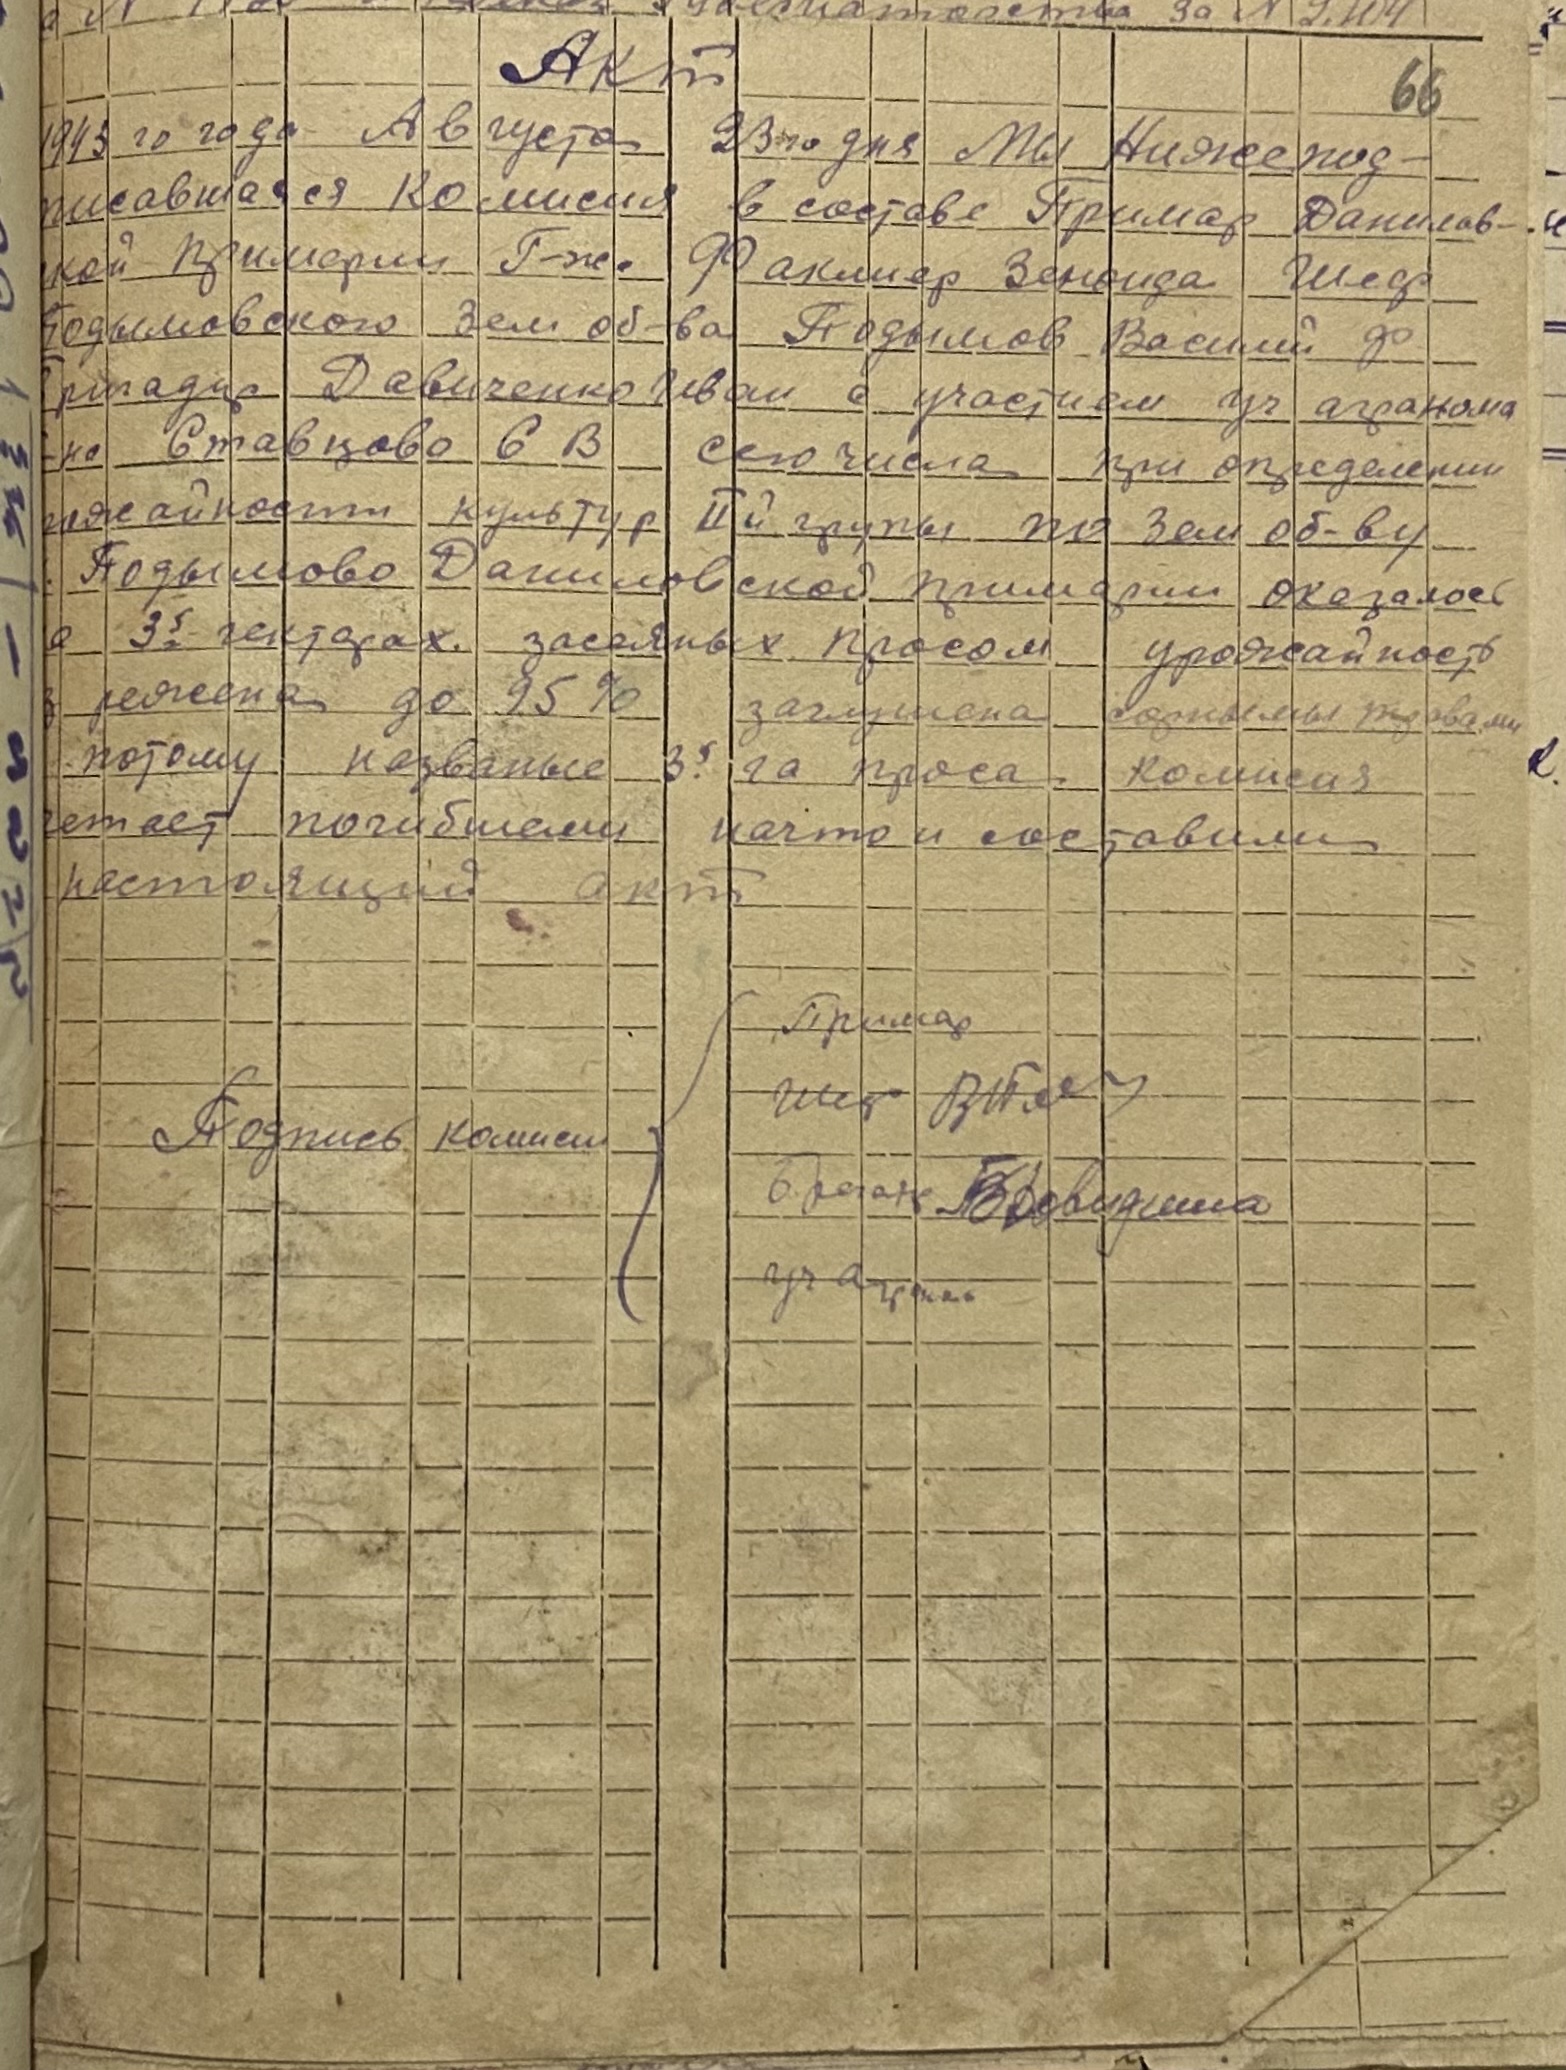 за N
Акт
66
1943 го года Августа 23-го дня Мы Нижепод-
писавшаяся Комисия в составе Примар Данилов-
кой примарии Г-жа Факлиер Зеноида Шеф
Подымовского Зем об-ва Подымов Василий Ф
Давиченко Иван с участием уч агранома
Ставцова С В сего числа при определении
культур II й групы по Зем об-ву
Подымово Даниловской примарии оказалось
3,5 гектарах. засеяных просом урожайность
режена до 95% заглушена сорными травами
потому названые 3,5 га проса Комисия
погибшеми на что и составили
настоящий акт
Примар
Шеф
Подпись комиси
уч